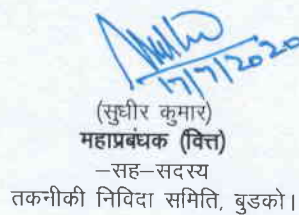 17/7/2020
(सुधीर कुमार)
महाप्रबंधक (वित्त)
–सह–सदस्य
तकनीकी निविदा समिति, बुडको।